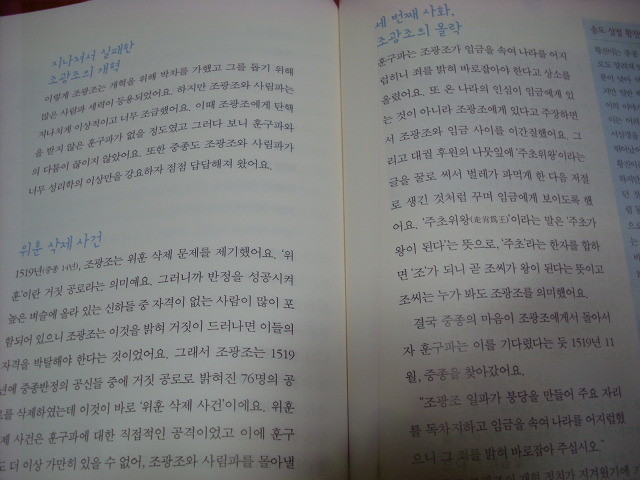 지나쳐서 실패한
조광조의 개혁
이렇게 조광조는 개혁을 위해 박차를 가했고 그를 돕기 위해
많은 사림과 세력이 등용되었어요. 하지만 조광조와 사림파는
지나치게 이상적이고 너무 조급했어요. 이때 조광조에게 탄핵
을 받지 않은 훈구파가 없을 정도였고 그러다 보니 훈구파와
의 다툼이 끊이지 않았어요. 또한 중종도 조광조와 사림파가
너무 성리학의 이상만을 강요하자 점점 답답해져 왔어요.
위훈 삭제 사건
1519년(중종 14년), 조광조는 위훈 삭제 문제를 제기했어요. '위
훈'이란 거짓 공로라는 의미예요. 그러니까 반정을 성공시켜
높은 벼슬에 올라 있는 신하들 중 자격이 없는 사람이 많이 포
함되어 있으니 조광조는 이것을 밝혀 거짓이 드러나면 이들의
자격을 박탈해야 한다는 것이었어요. 그래서 조광조는 1519
년에 중종반정의 공신들 중에 거짓 공로로 밝혀진 76명의 공
를 삭제하였는데 이것이 바로 '위훈 삭제 사건'이에요. 위훈
제 사건은 훈구파에 대한 직접적인 공격이었고 이에 훈구
도 더 이상 가만히 있을 수 없어, 조광조와 사림파를 몰아낼
세 번째 사화,
조광조의 몰락
훈구파는 조광조가 임금을 속여 나라를 어지
럽히니 죄를 밝혀 바로잡아야 한다고 상소를
올렸어요. 또 온 나라의 인심이 임금에게 있
는 것이 아니라 조광조에게 있다고 주장하면
서 조광조와 임금 사이를 이간질했어요. 그
리고 대궐 후원의 나뭇잎에 '주초위왕'이라는
글을 꿀로 써서 벌레가 파먹게 한 다음 저절
로 생긴 것처럼 꾸며 임금에게 보이도록 했
어요. '주초위왕(走肖爲王)'이라는 말은 '주초가
왕이 된다'는 뜻으로, '주초'라는 한자를 합하
면 '조'가 되니 곧 조씨가 왕이 된다는 뜻이고
조씨는 누가 봐도 조광조를 의미했어요.
결국 중종의 마음이 조광조에게서 돌아서
자 훈구파는 이를 기다렸다는 듯 1519년 11
월, 중종을 찾아갔어요.
"조광조 일파가 붕당을 만들어 주요 자리
를 독차지하고 임금을 속여 나라를 어지럽혔
으니 그 죄를 밝혀 바로잡아 주십시오."